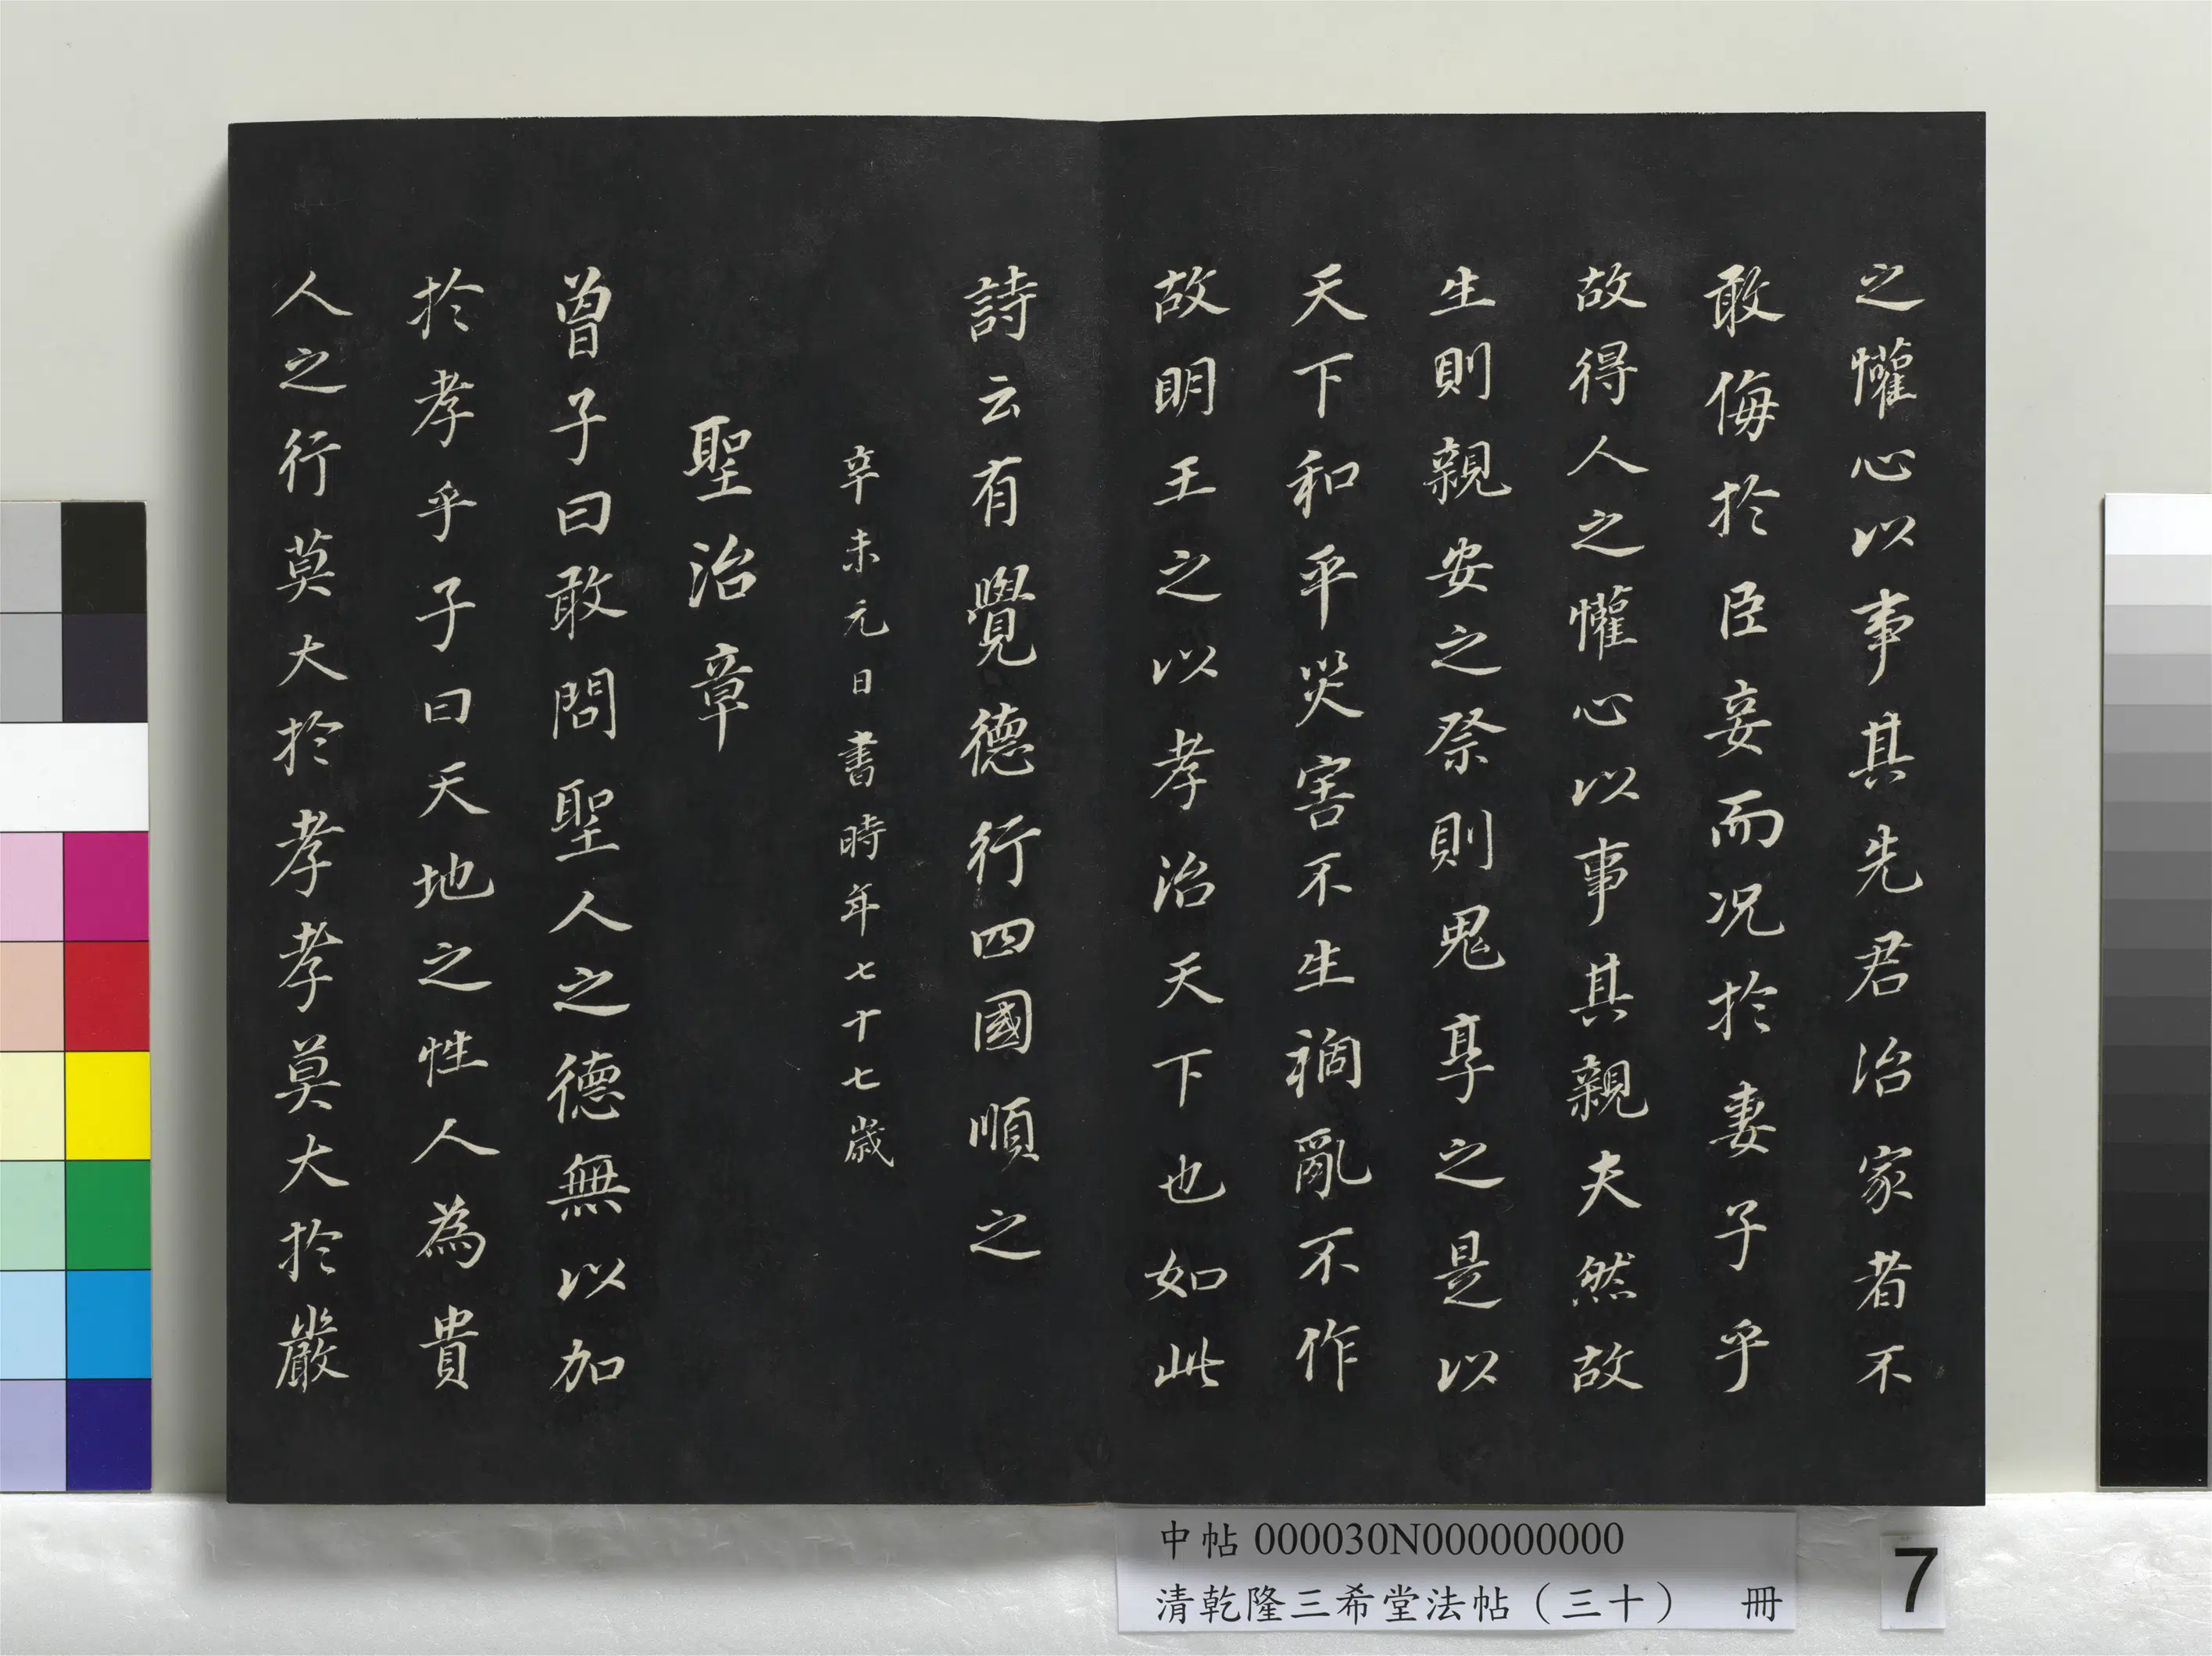 之懽心以事其先君治家者不
敢侮於臣妾而况於妻子乎
故得人之懽心以事其親夫然故
生則親安之祭則鬼享之是以
天下和平災害不生禍亂不作
故明王之以孝治天下也如此
詩云有覺德行四國順之
辛未元日書時年七十七歲
聖治章
曾子曰敢問聖人之德無以加
於孝乎子曰天地之性人為貴
人之行莫大於孝孝莫大於嚴
中帖 000030N000000000
清乾隆三希堂法帖（三十） 冊
7